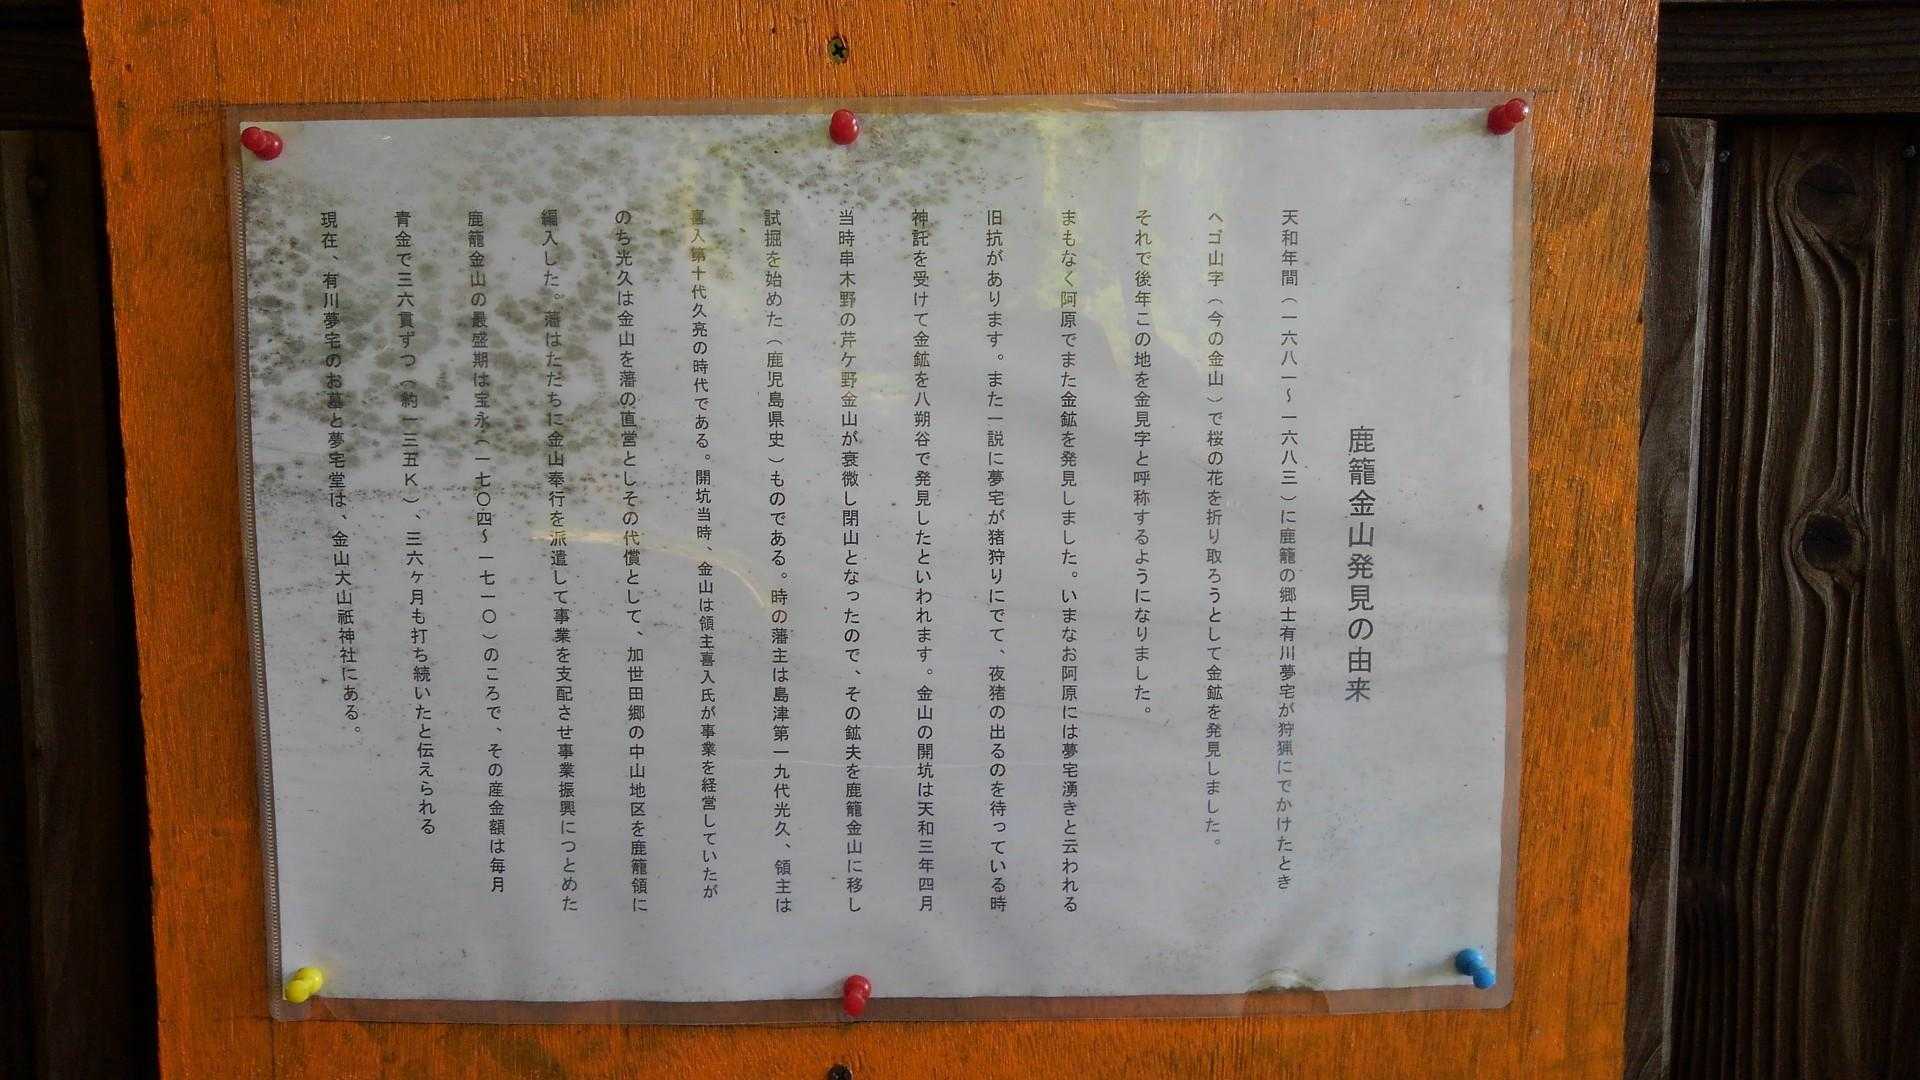 鹿籠金山発見の由来
天和年間（一六八一～一六八三）に鹿籠の郷士有川夢宅が狩猟にでかけたとき
ヘゴ山字（今の金山）で桜の花を折り取ろうとして金鉱を発見しました。
それで後年この地を金見字と呼称するようになりました。
まもなく阿原でまた金鉱を発見しました。いまなお阿原には夢宅湧きと云われる
旧抗があります。また一説に夢宅が猪狩りにでて、夜猪の出るのを待っている時
神託を受けて金鉱を八朔谷で発見したといわれます。金山の開坑は天和三年四月
当時串木野の芹ケ野金山が衰微し閉山となったので、その鉱夫を鹿籠金山に移し
試掘を始めた（鹿児島県史）ものである。時の藩主は島津第一九代光久、領主は
喜入第十代久亮の時代である。開坑当時、金山は領主喜入氏が事業を経営していたが
のち光久は金山を藩の直営としその代償として、加世田郷の中山地区を鹿籠領に
編入した。藩はただちに金山奉行を派遣して事業を支配させ事業振興につとめた
鹿籠金山の最盛期は宝永（一七〇四～一七一〇）のころで、その産金額は毎月
青金で三六貫ずつ（約一三五K）、三六ヶ月も打ち続いたと伝えられる
現在、有川夢宅のお墓と夢宅堂は、金山大山祇神社にある。